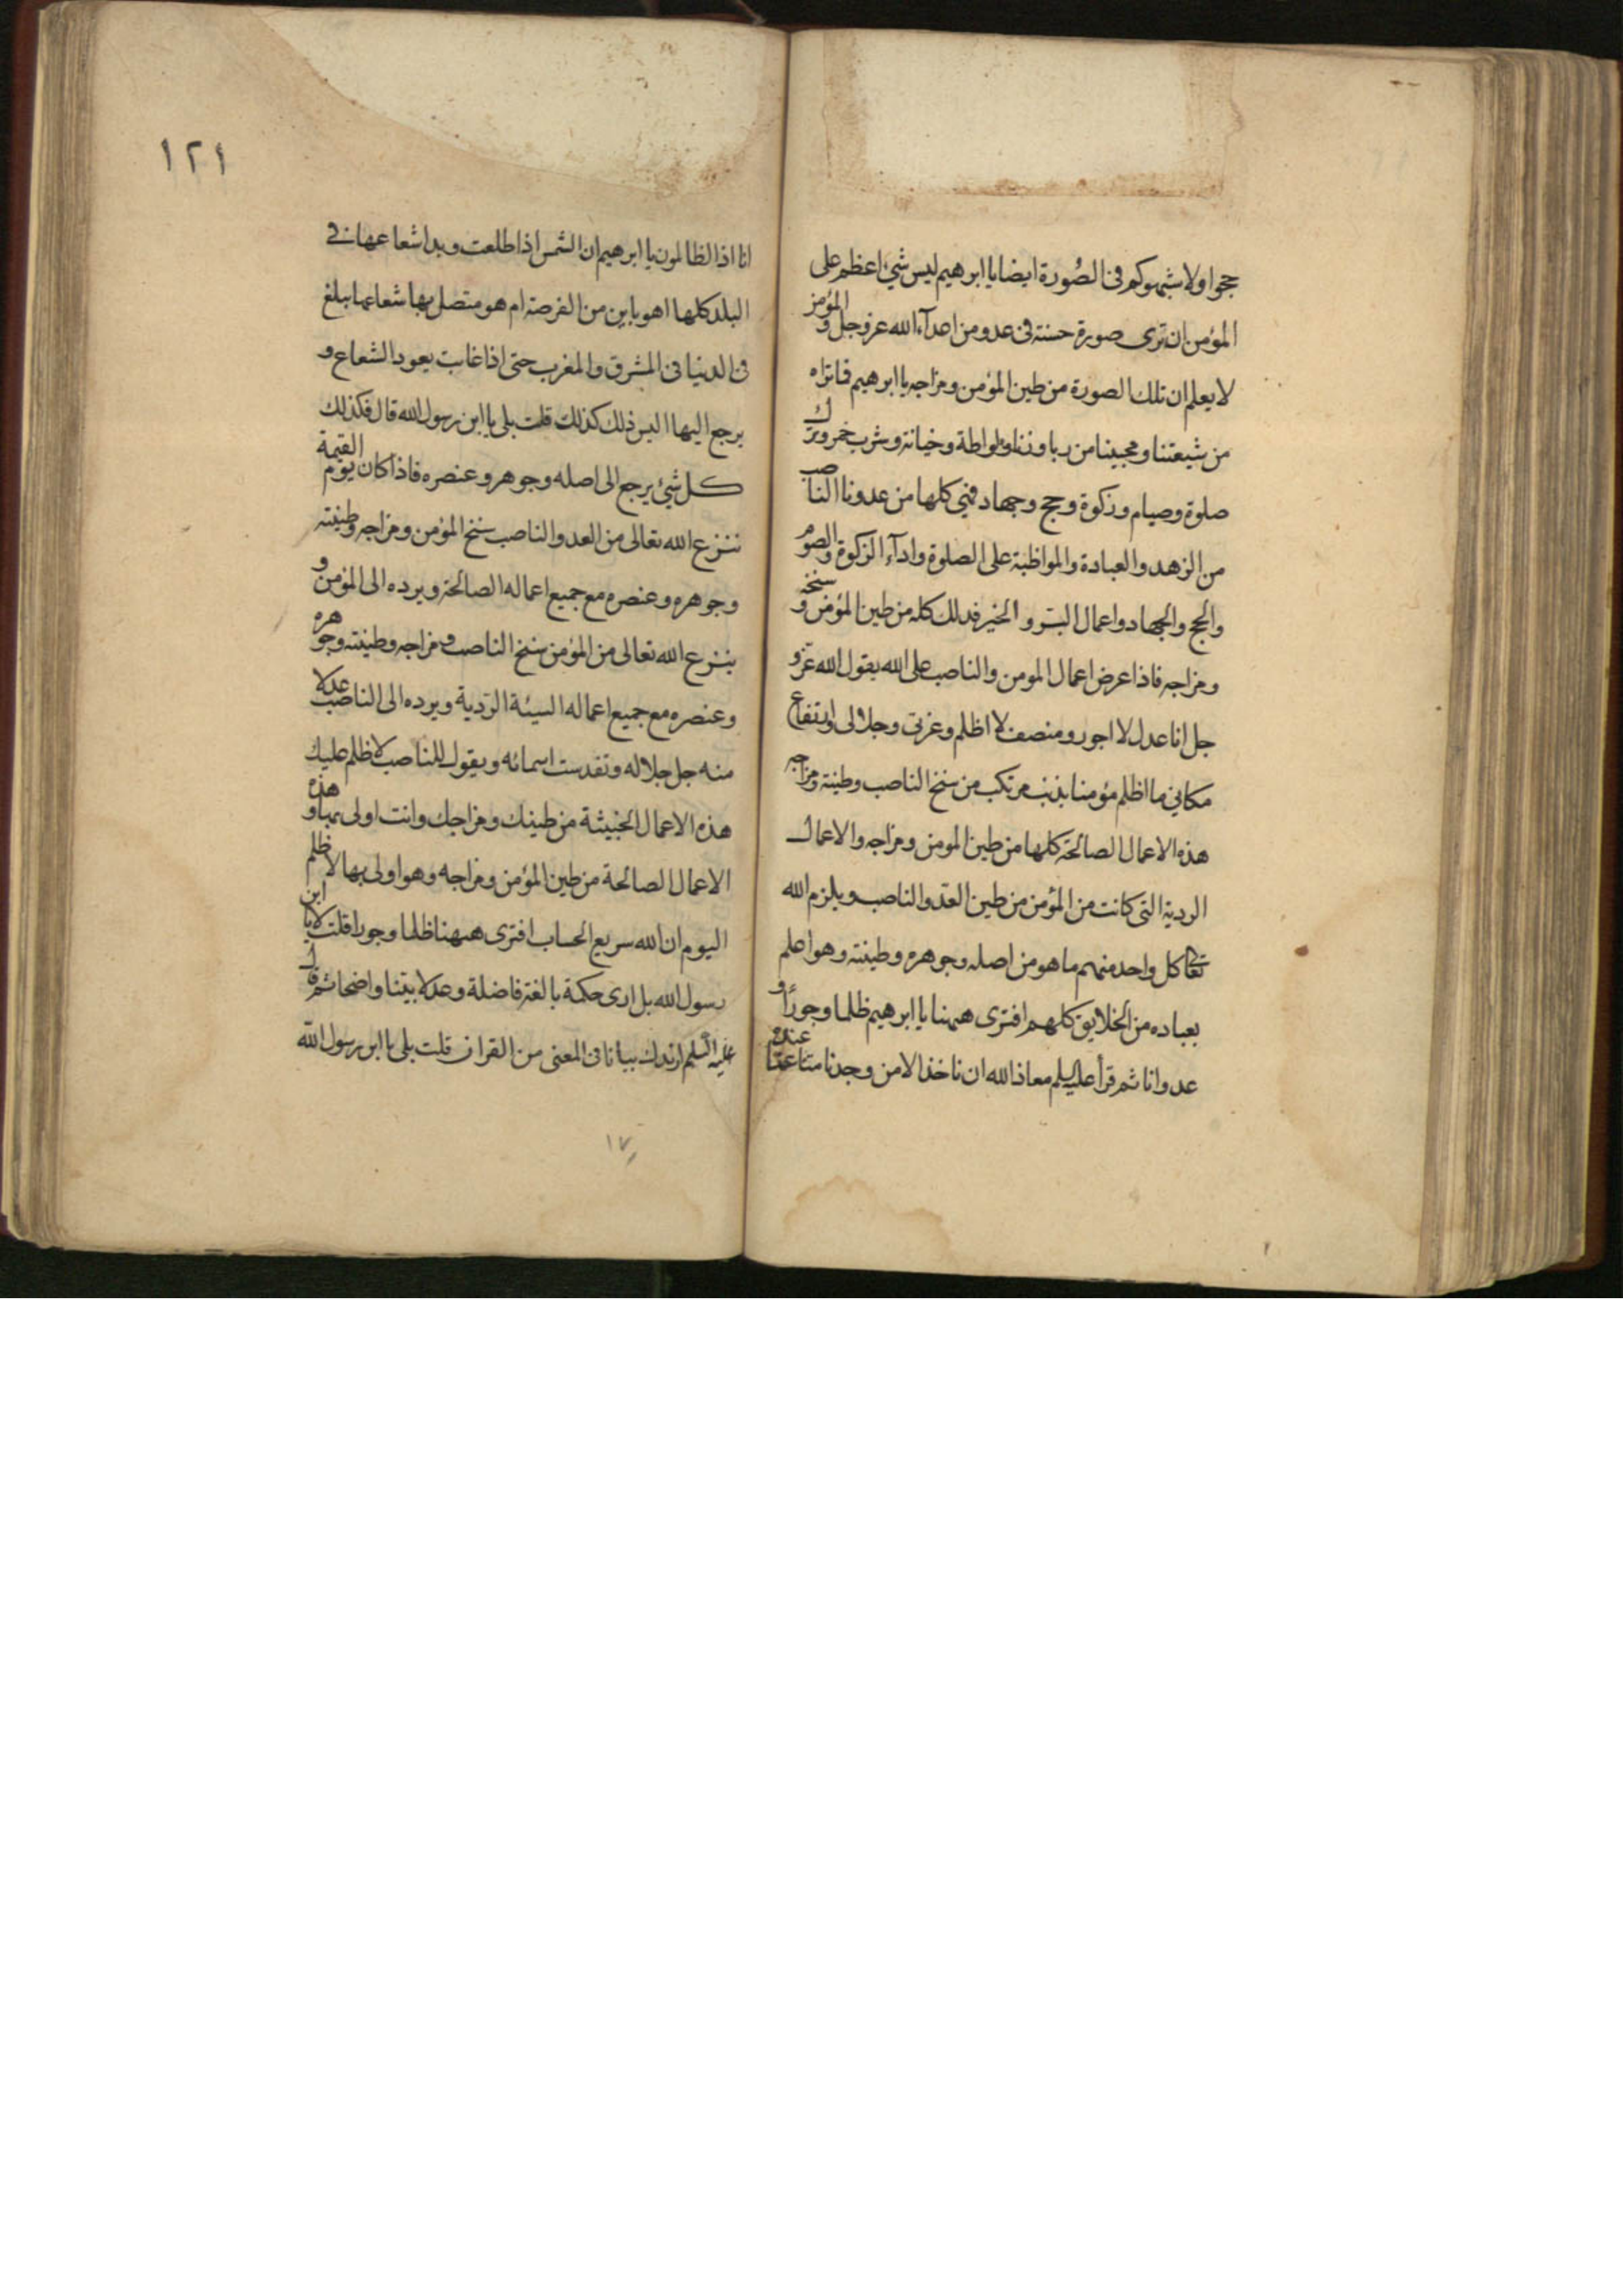 حجوا ولا اشبهوكم فى الصُورة ايضا يا ابرهيم ليس شئ اعظم على
المؤمن ان ترى صورة حسنة فى عدو من اعدآء الله عز وجل و المؤمن
لا يعلم ان تلك الصورة من طين المؤمن ومزاجه يا ابرهيم فما تراه
من شيعتنا ومحبينا من ربا وزنا ولواطة وخيانة وشرب خمر وترك
صلوة وصيام وزكوة وحج وجهاد فهي كلها من عدونا الناصب
من الزهد والعبادة والمواظبة على الصلوة وادآء الزكوة والصوم
والحج والجهاد واعمال البر و الخير فذلك كله من طين المؤمن و سنخه
ومزاجه فاذا عرض اعمال المومن والناصب على الله يقول الله عز و
جل انا عدل لا اجور ومنصف لا اظلم وعزتى وجلالى وارتفاع
مكانى ما اظلم مؤمنا بذنب مرتكب من سنخ الناصب وطينة ومزاجه
هذه الاعمال الصالحة كلها من طين المومن ومزاجه والاعمال
الردية التى كانت من المؤمن من طين العدو الناصب ويلزم الله
تعا كل واحد منهم ما هو من اصله وجوهره وطينته وهو اعلم
بعباده من الخلايق كلهم افترى ههنا يا ابرهيم ظلما وجورًا و
عدوانا ثم قرأ عليه السلم معاذ الله ان ناخذ الا من وجدنا متاعنا عنده
١٢١
انا اذا الظالمون يا ابرهيم ان الشمس اذا طلعت وبدا شعاعها فى
البلد كلها اهو باين من القرصة ام هو متصل بها شعاعها يبلغ
فى الدنيا فى المشرق والمغرب حتى اذا غابت يعود الشعاع و
يرجع اليها اليس ذلك كذلك قلت بلى يا ابن رسول الله قال فكذلك
كل شئ يرجع الى اصله وجوهره وعنصره فاذا كان يوم القيمة
ننزع الله تعالى من العدو الناصب سنخ المؤمن ومزاجه وطينته
وجوهره وعنصره مع جميع اعماله الصالحة ويرده الى المؤمن و
ينزع الله تعالى من المؤمن سنخ الناصب ومزاجه وطينته وجوهره
وعنصره مع جميع اعماله السيئة الردية ويرده الى الناصب عدلا
منه جل جلاله وتقدست اسمائه ويقول للناصب لا ظلم عليك
هذه الاعمال الخبيثة من طينك ومزاجك وانت اولى بها و هذه
الاعمال الصالحة من طين المؤمن ومزاجه وهو اولى بها لا ظلم
اليوم ان الله سريع الحساب افترى ههنا ظلما وجورا قلت لا يا ابن
رسول الله بل ارى حكمة بالغة فاضلة وعدلا بينا واضحا ثم قال
عليه السلم ازيدك بيانا فى المعنى من القران قلت بلى يا ابن رسول الله
١٧